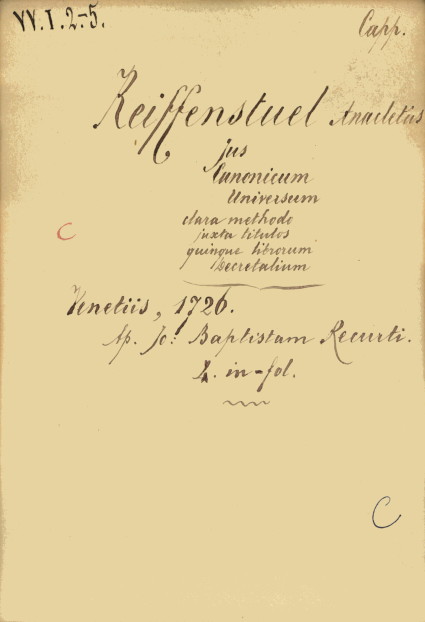 VV.I.2-5.
Capp.
Reiffenstuel Anacletus
jus
Canonicum
Universum
clara methodo
juxta titulos
quinque librorum
Decretalium
C
Venetiis, 1726.
Ap. Jo: Baptistam Recurti.
in-fol.
C